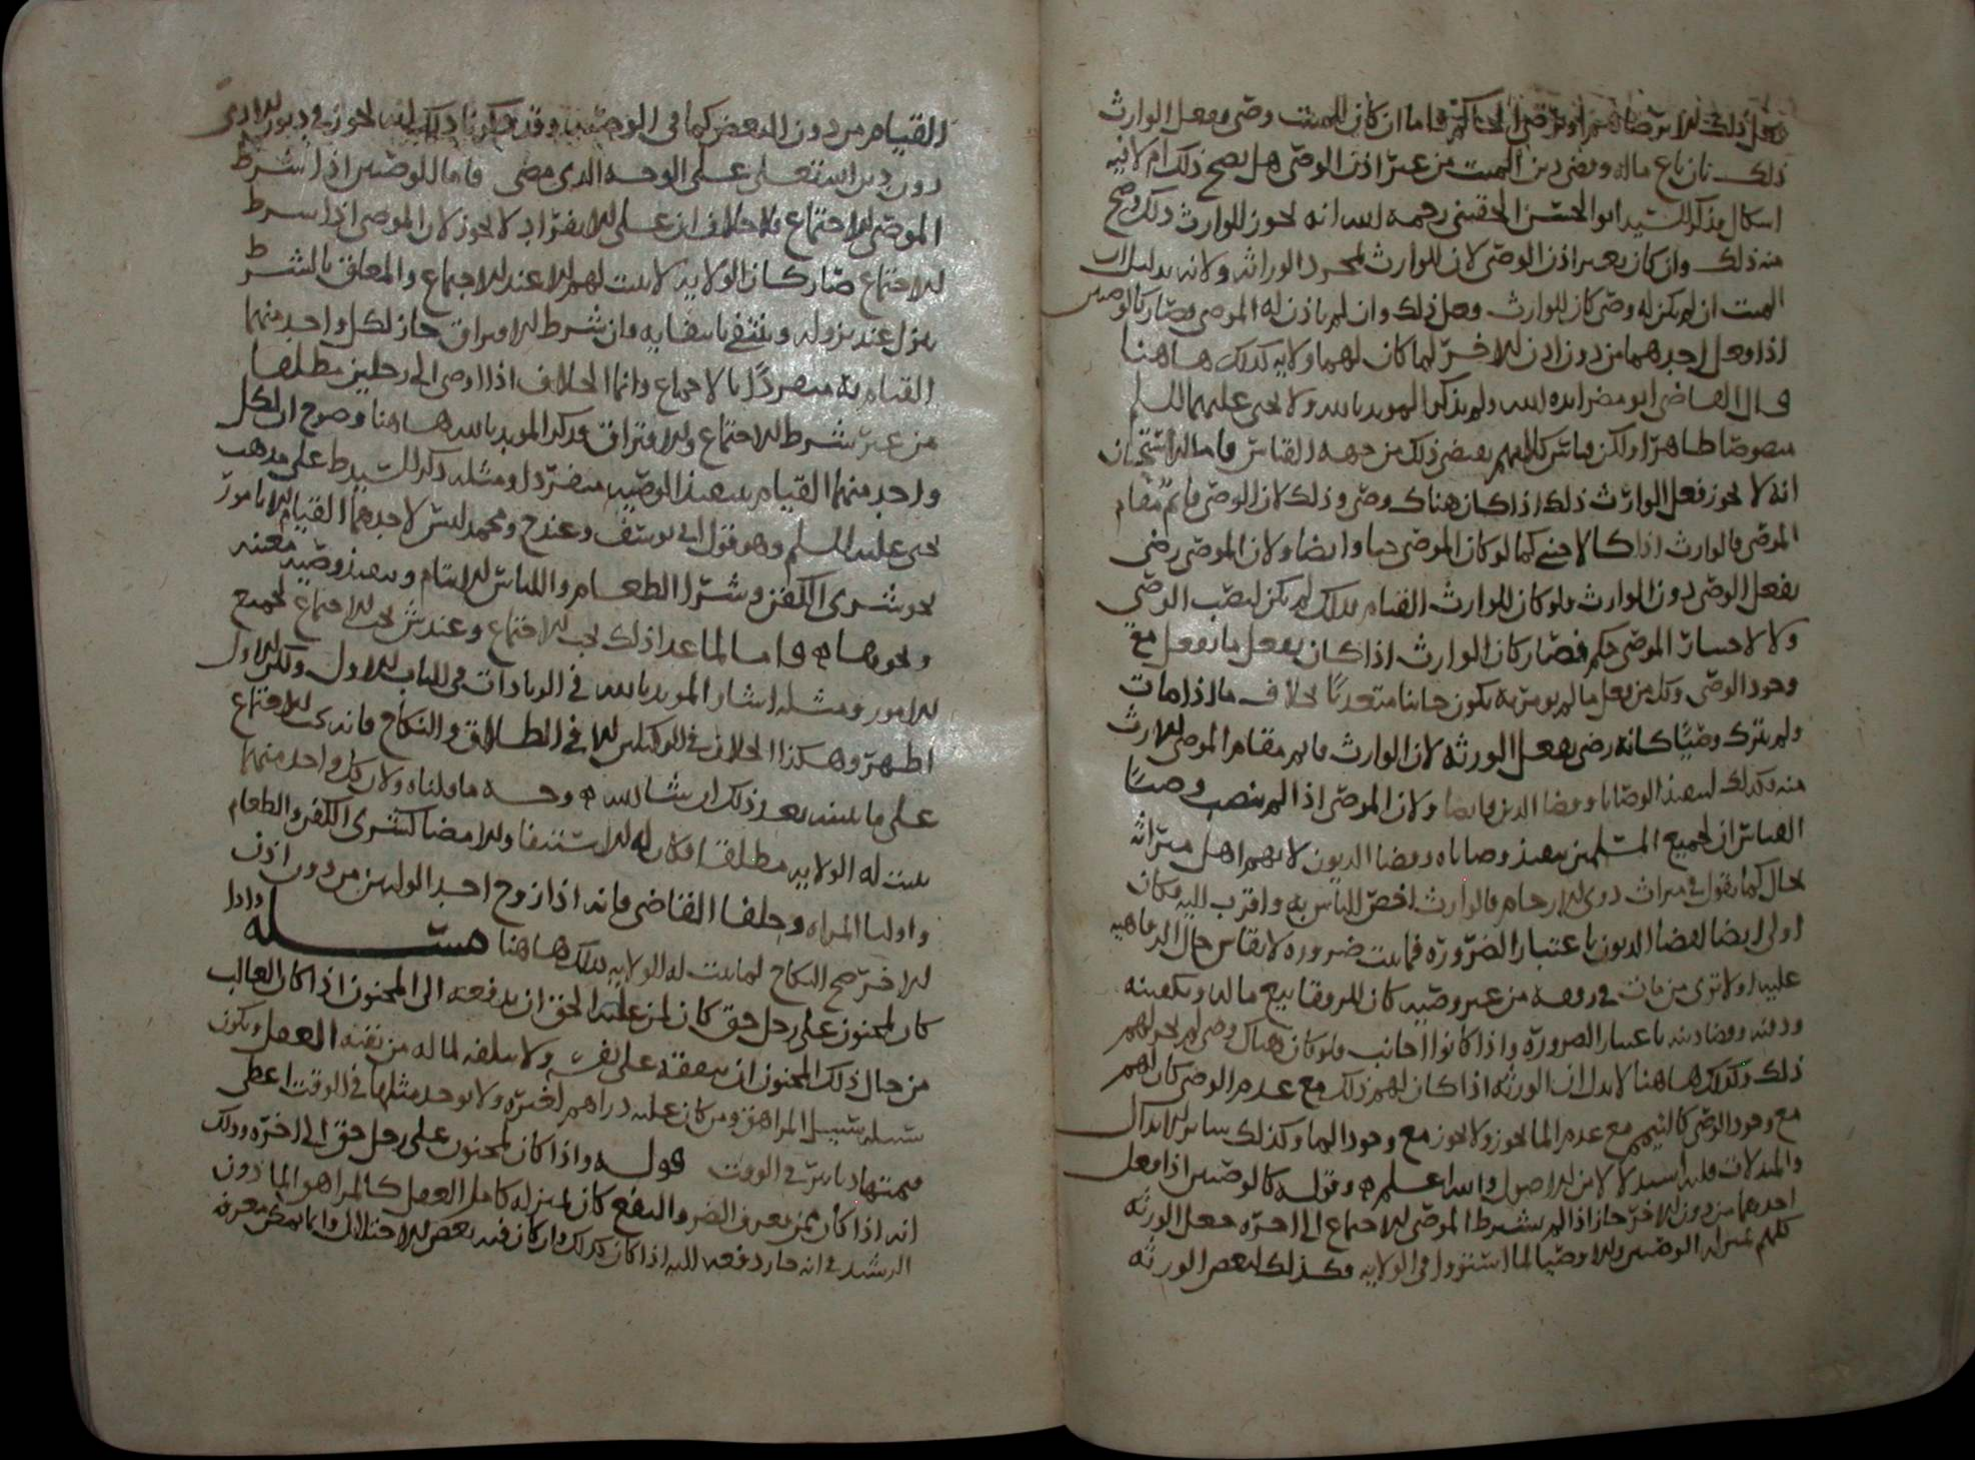 فعل ذلك الا برضاهم او برضى الحاكم فاما ان كان للميت وصي وفعل الوارث
ذلك بان باع ماله وقضى دين الميت من غير اذن الوصي هل يصح ذلك ام لا فيه
اشكال فذكر السيد ابو الحسن الحقيني رحمه الله انه يجوز للوارث ذلك ويصح
منه ذلك وان كان بغير اذن الوصي لان للوارث مجرد الوراثه ولانه بدليل ان
الميت ان لم يكن له وصي كان للوارث وفعل ذلك وان لم ياذن له الموصي فصار كالوصيين
اذا فعل احدهما من دون اذن الاخر لما كان لهما ولايه كذلك هاهنا
قال القاضي ابو مضر ايده الله ولم يذكر المويد بالله ولا يحيى عليهما السلم
منصوصا ظاهرا ولكن قياس كلامهم يقتضي ذلك من جهه القياس فاما الاستحسان
انه لا يجوز فعل الوارث ذلك اذا كان هناك وصي وذلك لان الوصي قائم مقام
الموصي فالوارث اذا كالاجنبي كما لو كان الموصي حيا وايضا ولان الموصي رضي
بفعل الوصي دون الوارث فلو كان للوارث القيام بذلك لم يكن لنصب الوصي
ولا لاختيار الموصي حكم فصار كان الوارث اذا كان يفعل ما يفعل مع
وجود الوصي وكل من يفعل ما لم يومر به يكون جانيا متعديا بخلاف ما اذا مات
ولم يترك وصيا كانه رضي بفعل الورثه لان الوارث قايم مقام الموصي للارث
منه وكذلك لتنفيذ الوصايا وقضا الدين فايضا ولان الموصي اذا لم ينصب وصيا
القياس ان لجميع المسلمين تنفيذ وصاياه وقضا الديون لانهم اهل ميراثه
بحال كما نقول في ميراث ذوي الارحام فالوارث اخص الناس به واقرب اليه فكان
اولى ايضا لقضا الديون باعتبار الضروره فما يثبت ضروره لا يقاس حال الرفاهيه
عليه اولا ترى من مات في رفقه من غير وصيه كان للرفقا بيع ماله وتكفينه
ودفنه وقضا دينه باعتبار الضروره واذا كانوا اجانب فلو كان هناك وصي لم يجز لهم
ذلك وكذلك هاهنا لا يدل ان الورثه اذا كان لهم ذلك مع عدم الوصي كان لهم
مع وجود الوصي كالتيمم مع عدم الما يجوز ولا يجوز مع وجود الما وكذلك سائر الابدال
والمبدلات فلهذا استدلالا من الاصول والله اعلم وقوله كالوصيين اذا فعل
احدهما من دون الاخر جاز اذا لم يشرط الموصي الاجتماع الى اخره جعل الورثه
كلهم بمنزله الوصيين والاوصيا لما استووا في الولايه فكذلك لبعض الورثه
القيام من دون البعض كما في الوصيين وقد ذكرنا ذلك انه يجوز في ديون الادمي
دون دين الله تعالى على الوجه الذي مضى فاما الوصيين اذا شرط
الموصي الاجتماع فلا خلاف ان على الانفراد لا يجوز لان الموصي اذا شرط
الاجتماع صار كان الولايه لا تثبت لهم الا عند الاجتماع والمعلق بالشرط
ينزل عند نزوله وينتفي بانتفايه وان شرط الافتراق جاز لكل واحد منهما
القيام به منفردا بالاجماع وانما الخلاف اذا اوصى الى رجلين مطلقا
من غير شرط الاجتماع والافتراق فذكر المويد بالله هاهنا وصرح ان لكل
واحد منهما القيام بتنفيذ الوصيه منفردا ومثله ذكر السيد ط على مذهب
يحيى عليه السلم وهو قول ابي يوسف وعند ح ومحمد ليس لاحدهما القيام الا بامور
نحو شرى الكفن وشرا الطعام واللباس للايتام وتنفيذ وصيه معينه
ونحوها فاما لما عدا ذلك يجب الاجتماع وعند ش يجب الاجتماع لجميع
الامور ومثله اشار المويد بالله في الزيادات في الباب الاول ولكن الاول
اظهر وهكذا الخلاف في الوكيلين الا في الطلاق والنكاح فانه يجب الاجتماع
على ما نبينه بعد ذلك ان شا الله وجه ما قلناه ولان كل واحد منهما
يثبت له الولايه مطلقا فكان له الاستيفا والامضا كشرى الكفن والطعام
واوليا المراه وخلفا القاضي فانه اذا زوج احد الوليين من دون اذن
الاخر صح النكاح لما يثبت له الولايه كذلك هاهنا مسئله واذا
كان لمجنون على رجل حق كان لمن عليه الحق ان يدفعه الى المجنون اذا كان الغالب
من حال ذلك المجنون ان ينفقه على نفسه ولا يتلفه لما له من بقيه العقل ويكون
سبيله سبيل المراهق ومن كان عليه دراهم لغيره ولا يوجد مثلها في الوقت اعطى
قيمتها دنانير في الوقت قوله واذا كان لمجنون على رجل حق الى اخره وذلك
انه اذا كان ممن يعرف الضر والنفع كان بمنزله كامل العقل كالمراهق الماذون
الرشيد في انه جاز دفعه اليه اذا كان كذلك وان كان فيه بعض الاختلال وانما يمكن معرفه